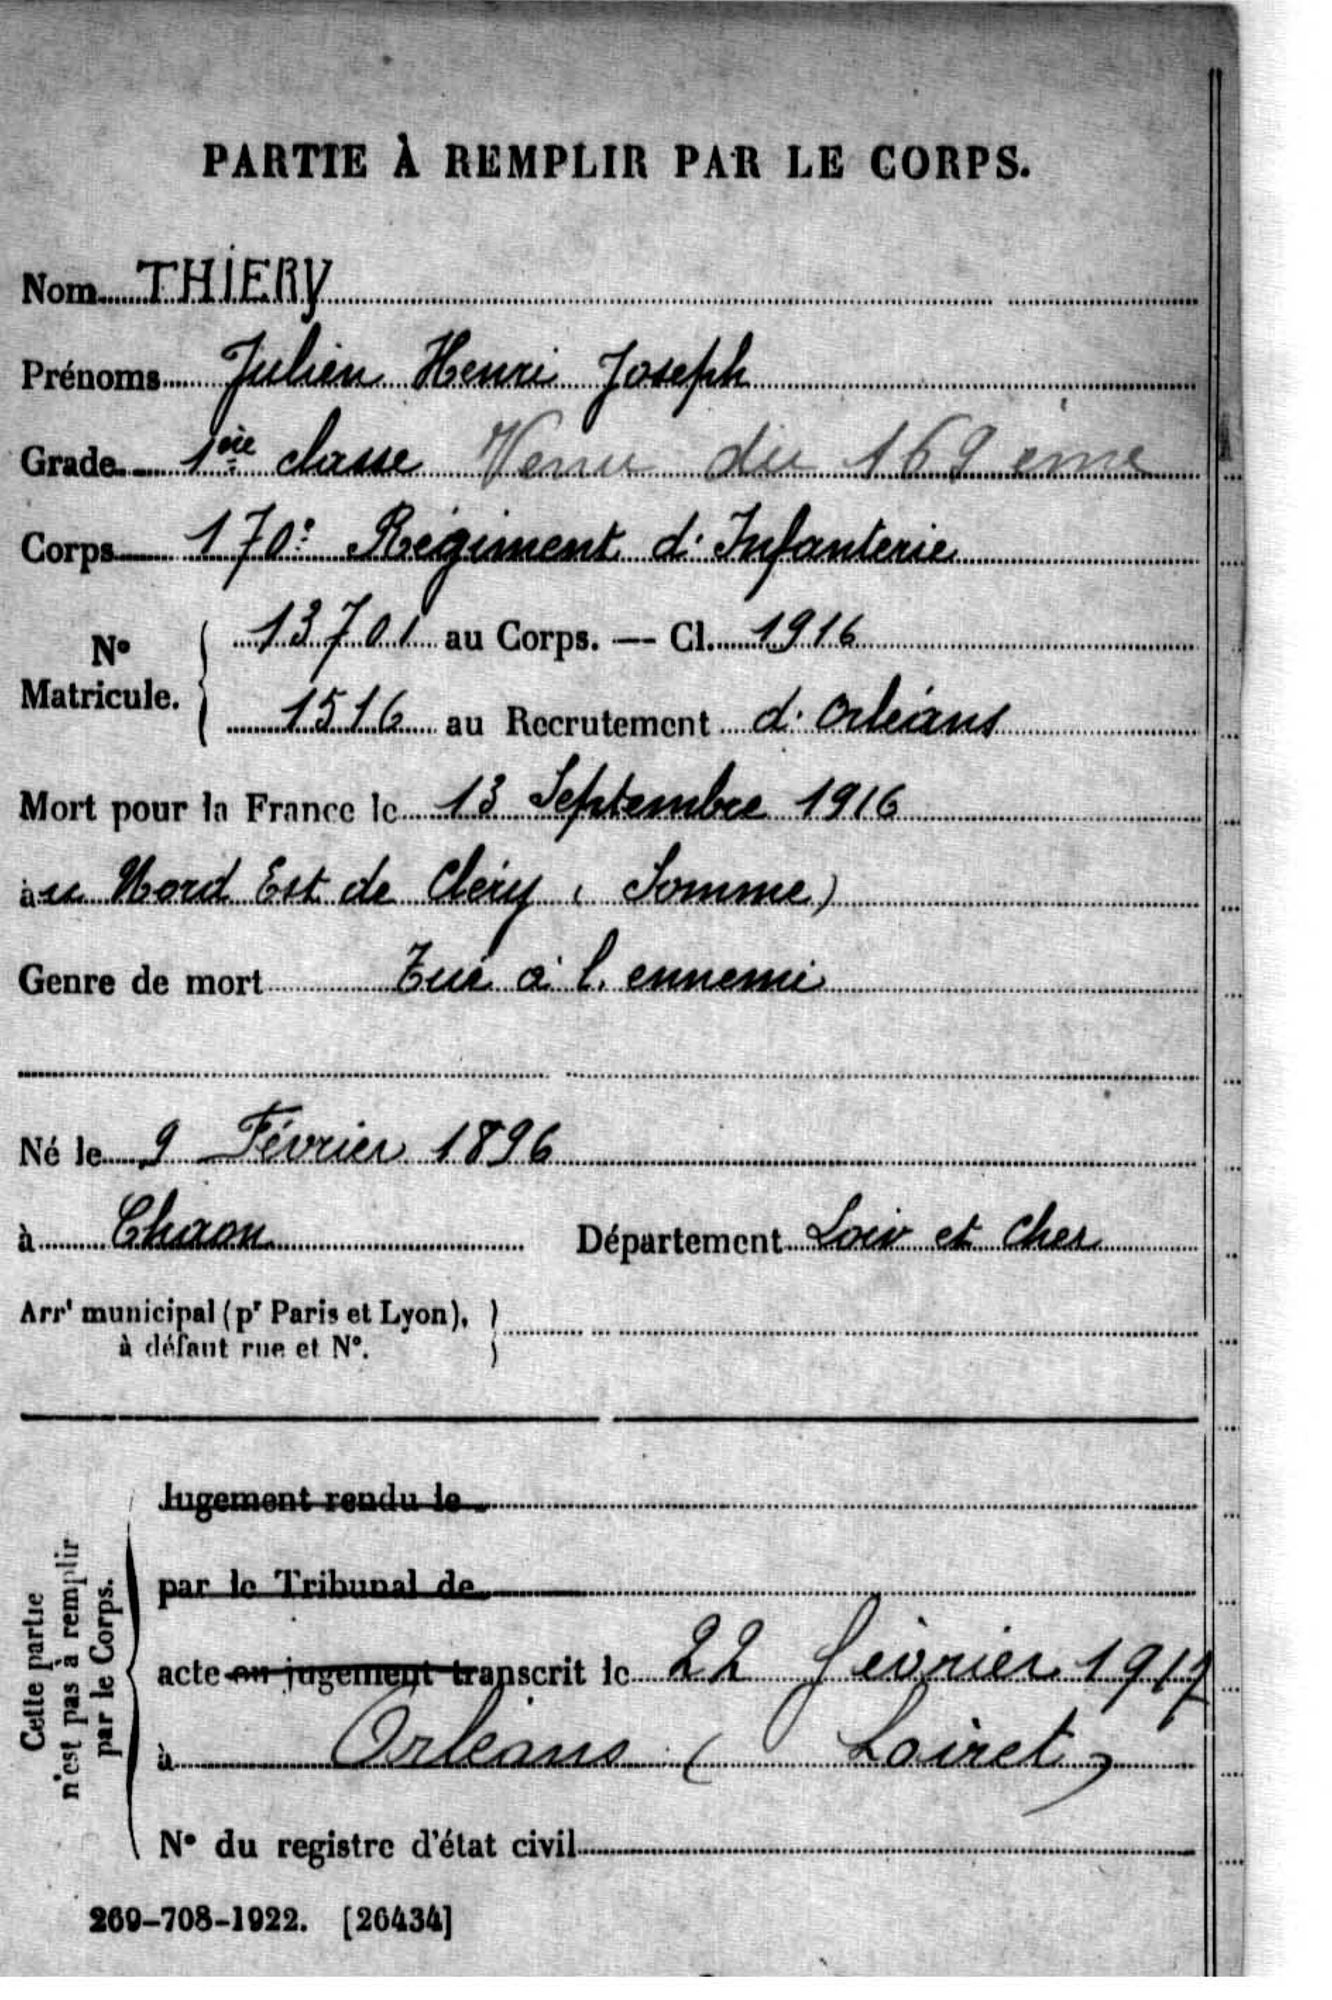 PARTIE À REMPLIR PAR LE CORPS.
Nom THIERY
Prénoms Julien Henri Joseph
Grade 1ère classe Venu du 169 eme
Corps 170e Régiment d'Infanterie
N° Matricule. { 13701 au Corps. — Cl. 1916
1516 au Recrutement d'Orléans
Mort pour la France le 13 Septembre 1916
au Nord Est de Cléry (Somme)
Genre de mort Tué à l'ennemi
Né le 9 Février 1896
à Chaon Département Loir et Cher
Arrt municipal (pr Paris et Lyon),
à défaut rue et N°.
Cette partie
n'est pas à remplir
par le Corps.
Jugement rendu le
par le Tribunal de
acte ou jugement transcrit le 22 février 1917
à Orléans (Loiret)
N° du registre d'état civil
269-708-1922. [26434]